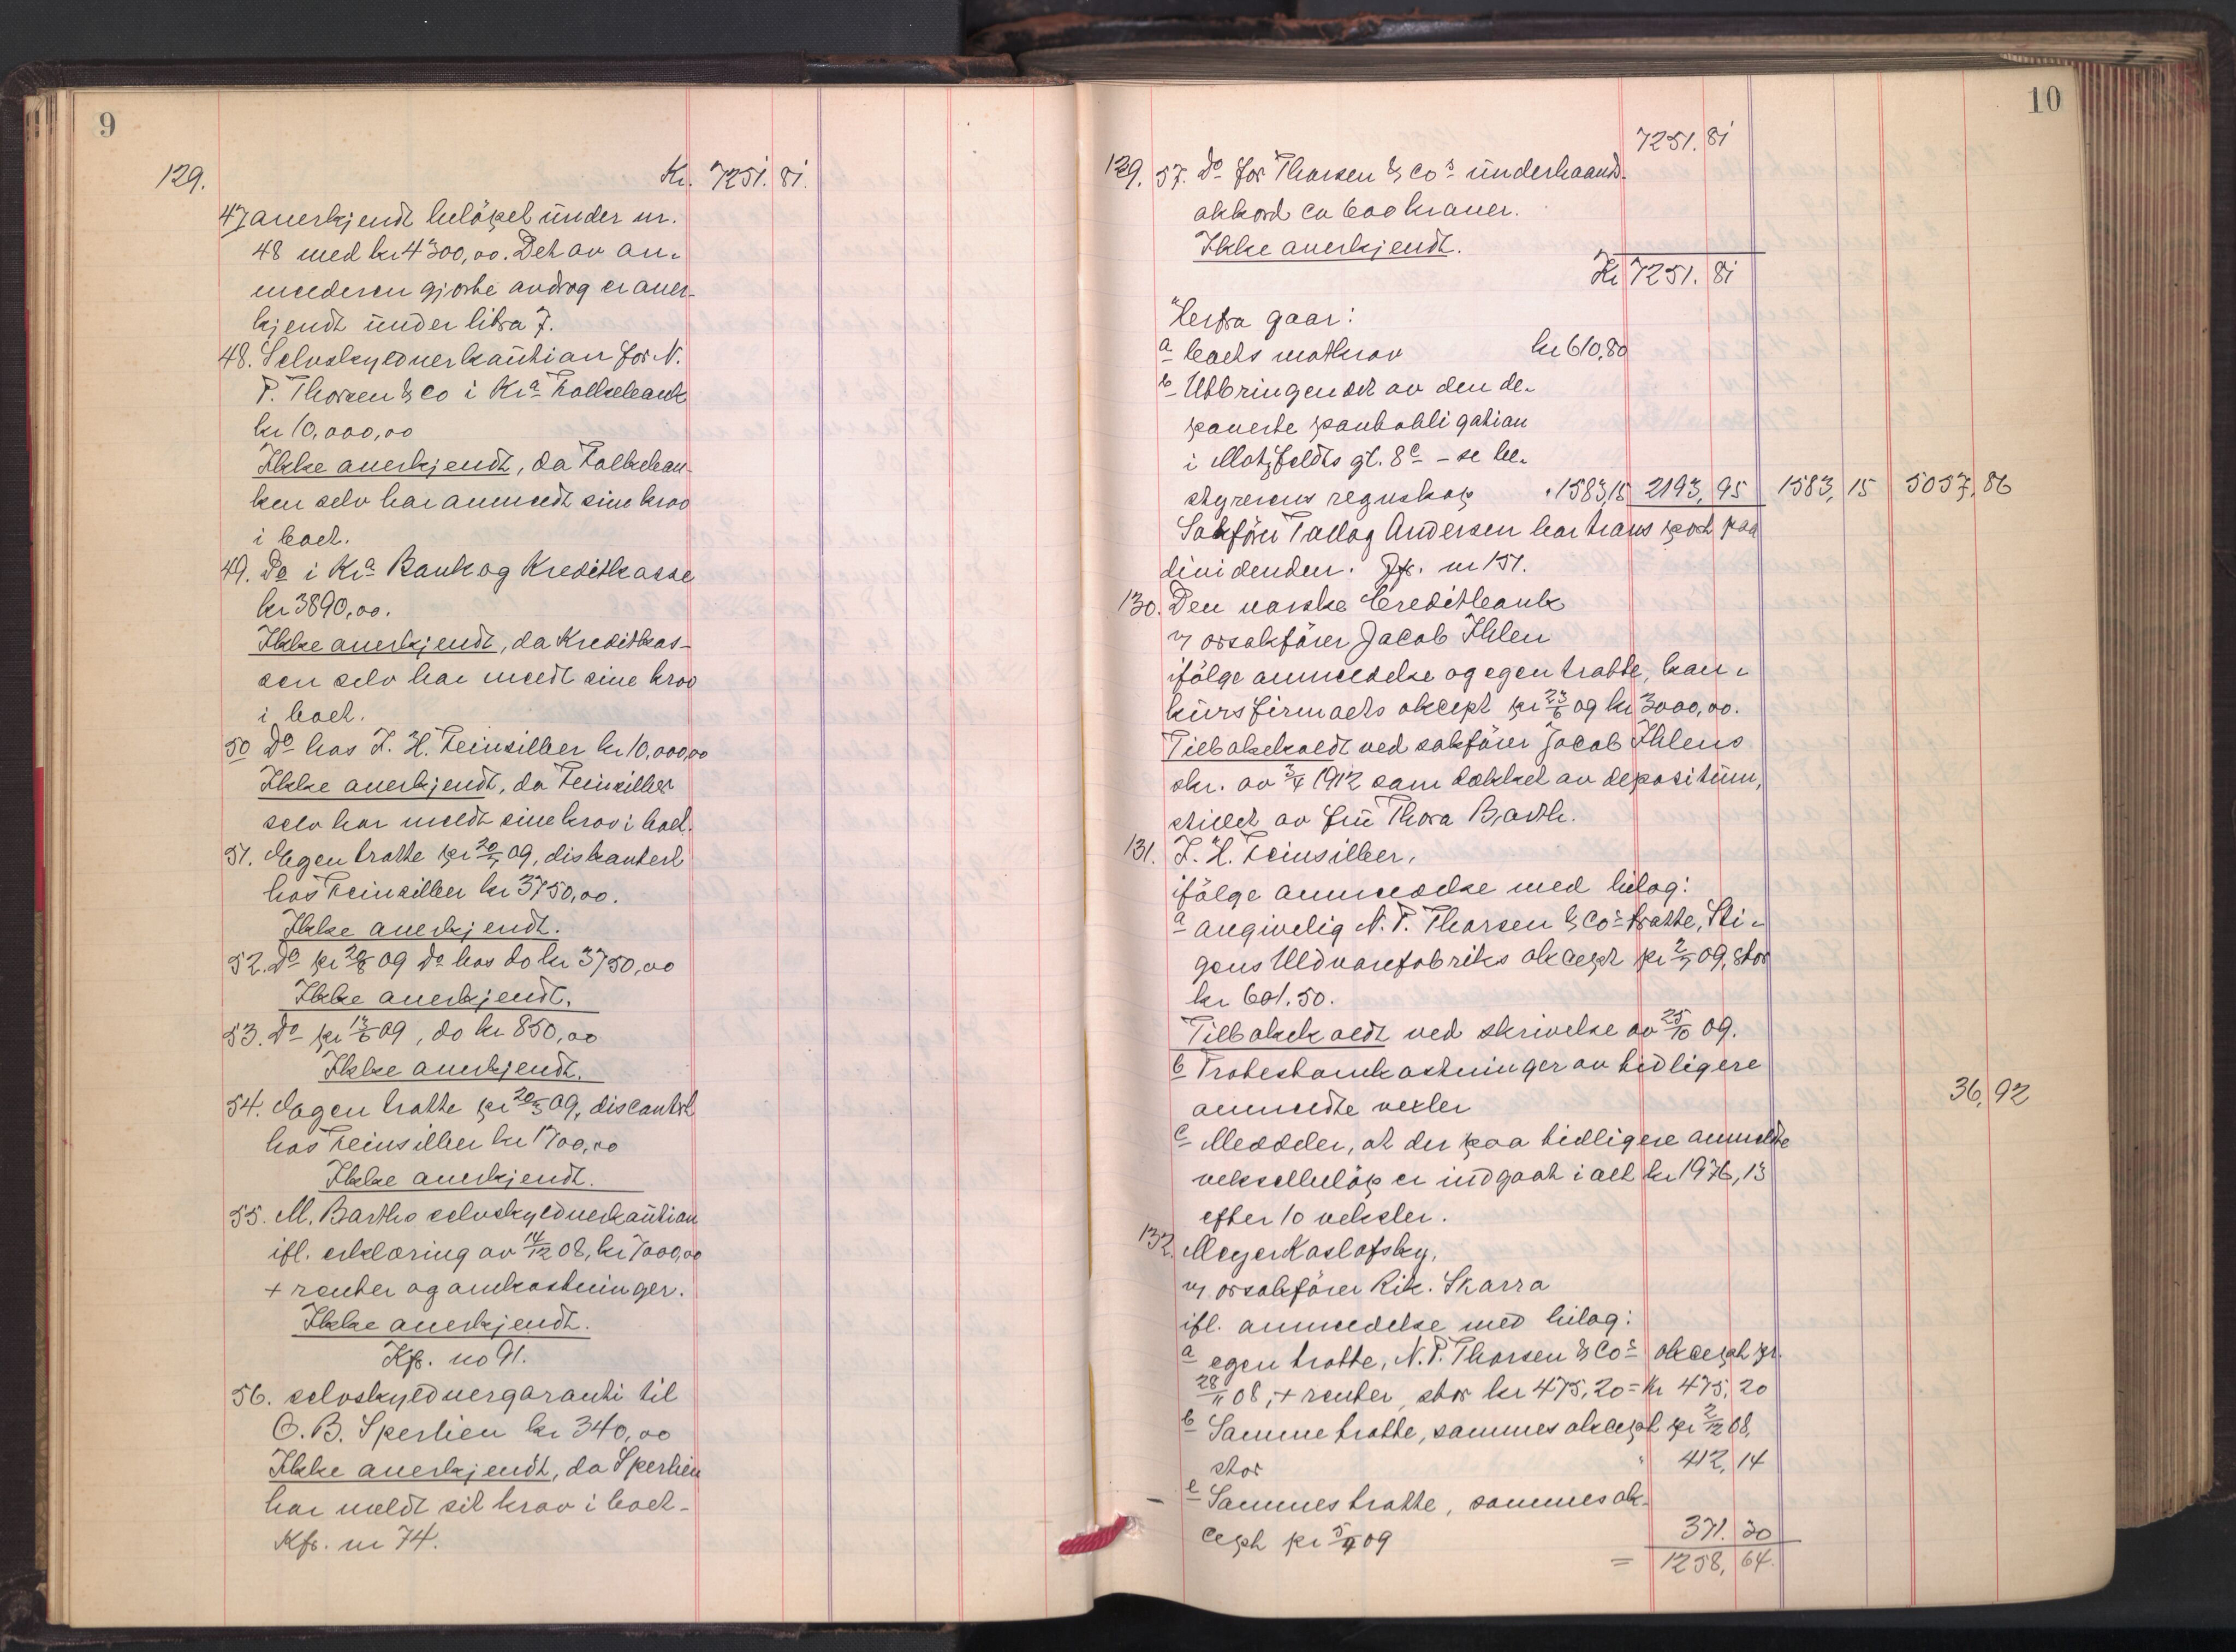 9
129. Kr. 7251. 81.
47 anerkjendt beløpet under nr.
48 med kr 4300,00. Det av an-
melderen gjorte andrag er aner-
kjendt under litra f.
48. Selvskyldnerkaution for N.
P. Thorsen & Co i Kra Folkebank
kr 10,000,00
Ikke anerkjendt, da Folkeban-
ken selv har anmeldt sine krav
i boet.
49. Do i Kra Bank og Kreditkasse
kr 3890,00.
Ikke anerkjendt, da Kreditkas-
sen selv har meldt sine krav
i boet.
50 Do hos J. H. Feinsilber kr 10,000,00
Ikke anerkjendt, da Feinsilber
selv har meldt sine krav i boet.
51. Egen tratte pr 20/7 09, diskontert
hos Feinsilber kr 3750,00.
Ikke anerkjendt.
52. Do pr 20/8 09 Do hos do kr 3750,00
Ikke anerkjendt.
53. Do pr 13/6 09, do kr 850,00
Ikke anerkjendt.
54. Egen tratte pr 20/5 09, discontert
hos Feinsilber kr 1700,00
Ikke anerkjendt.
55. M. Barths selvskyldnerkaution
ifl. erklæring av 14/12 08, kr 7000,00
+ renter og omkostninger.
Ikke anerkjendt.
Kfr. no 91.
56. selvskyldnergaranti til
O. B. Sperlien kr 340,00
Ikke anerkjendt, da Sperlien
har meldt sit krav i boet-
Kfr. nr 74.
10
7251. 81
129. 57. Do for Thorsen & Cos underhaands-
akkord ca 600 kroner.
Ikke anerkjendt.
Kr 7251. 81
Herfra gaar:
a boets motkrav kr 610,80
b Utbringendet av den de-
ponerte pantobligation
i Motzfeldts gt. 8c - se be-
styrerens regnskap " 1583,15 2193, 95 1583, 15 5057, 86
Sakfører Tallag Andersen har transport paa
dividenden. Jfr. nr 151.
130. Den norske Creditbank
v/ orsakfører Jacob Ihlen
ifølge anmeldelse og egen tratte, kon-
kursfirmaets aksept pr 23/6 09 kr 3000,00.
Tilbakekaldt ved sakfører Jacob Ihlens
skr. av 3/4 1912 som dækket av depositum,
stillet av fru Thora Barth.
131. J. H. Feinsilber,
ifølge anmeldelse med bilag:
a angivelig N. P. Thorsen & Cos tratte, Sti-
gens Uldvarefabriks akcept pr 2/7 09, stor
kr 601.50.
Tilbakekaldt ved skrivelse av 25/10 09.
b Protestomkostninger av tidligere
anmeldte vexler 36,92
c Meddeler, at der paa tidligere anmeldte
vekselbeløp er indgaat i alt kr 1976,13
efter 10 veksler.
132. Meyer Koslofsky,
v/ orsakfører Rik. Skarra
ifl. anmeldelse med bilag:
a egen tratte, N. P. Thorsen & Cos akcept pr.
28/11 08, + renter, stor kr 475,20 = Kr 475, 20
b Samme tratte, sammes akcept pr 2/12 08,
stor " 412, 14
c Sammes tratte, sammes ak-
cept pr 5/4 09 371. 30
= 1258, 64.